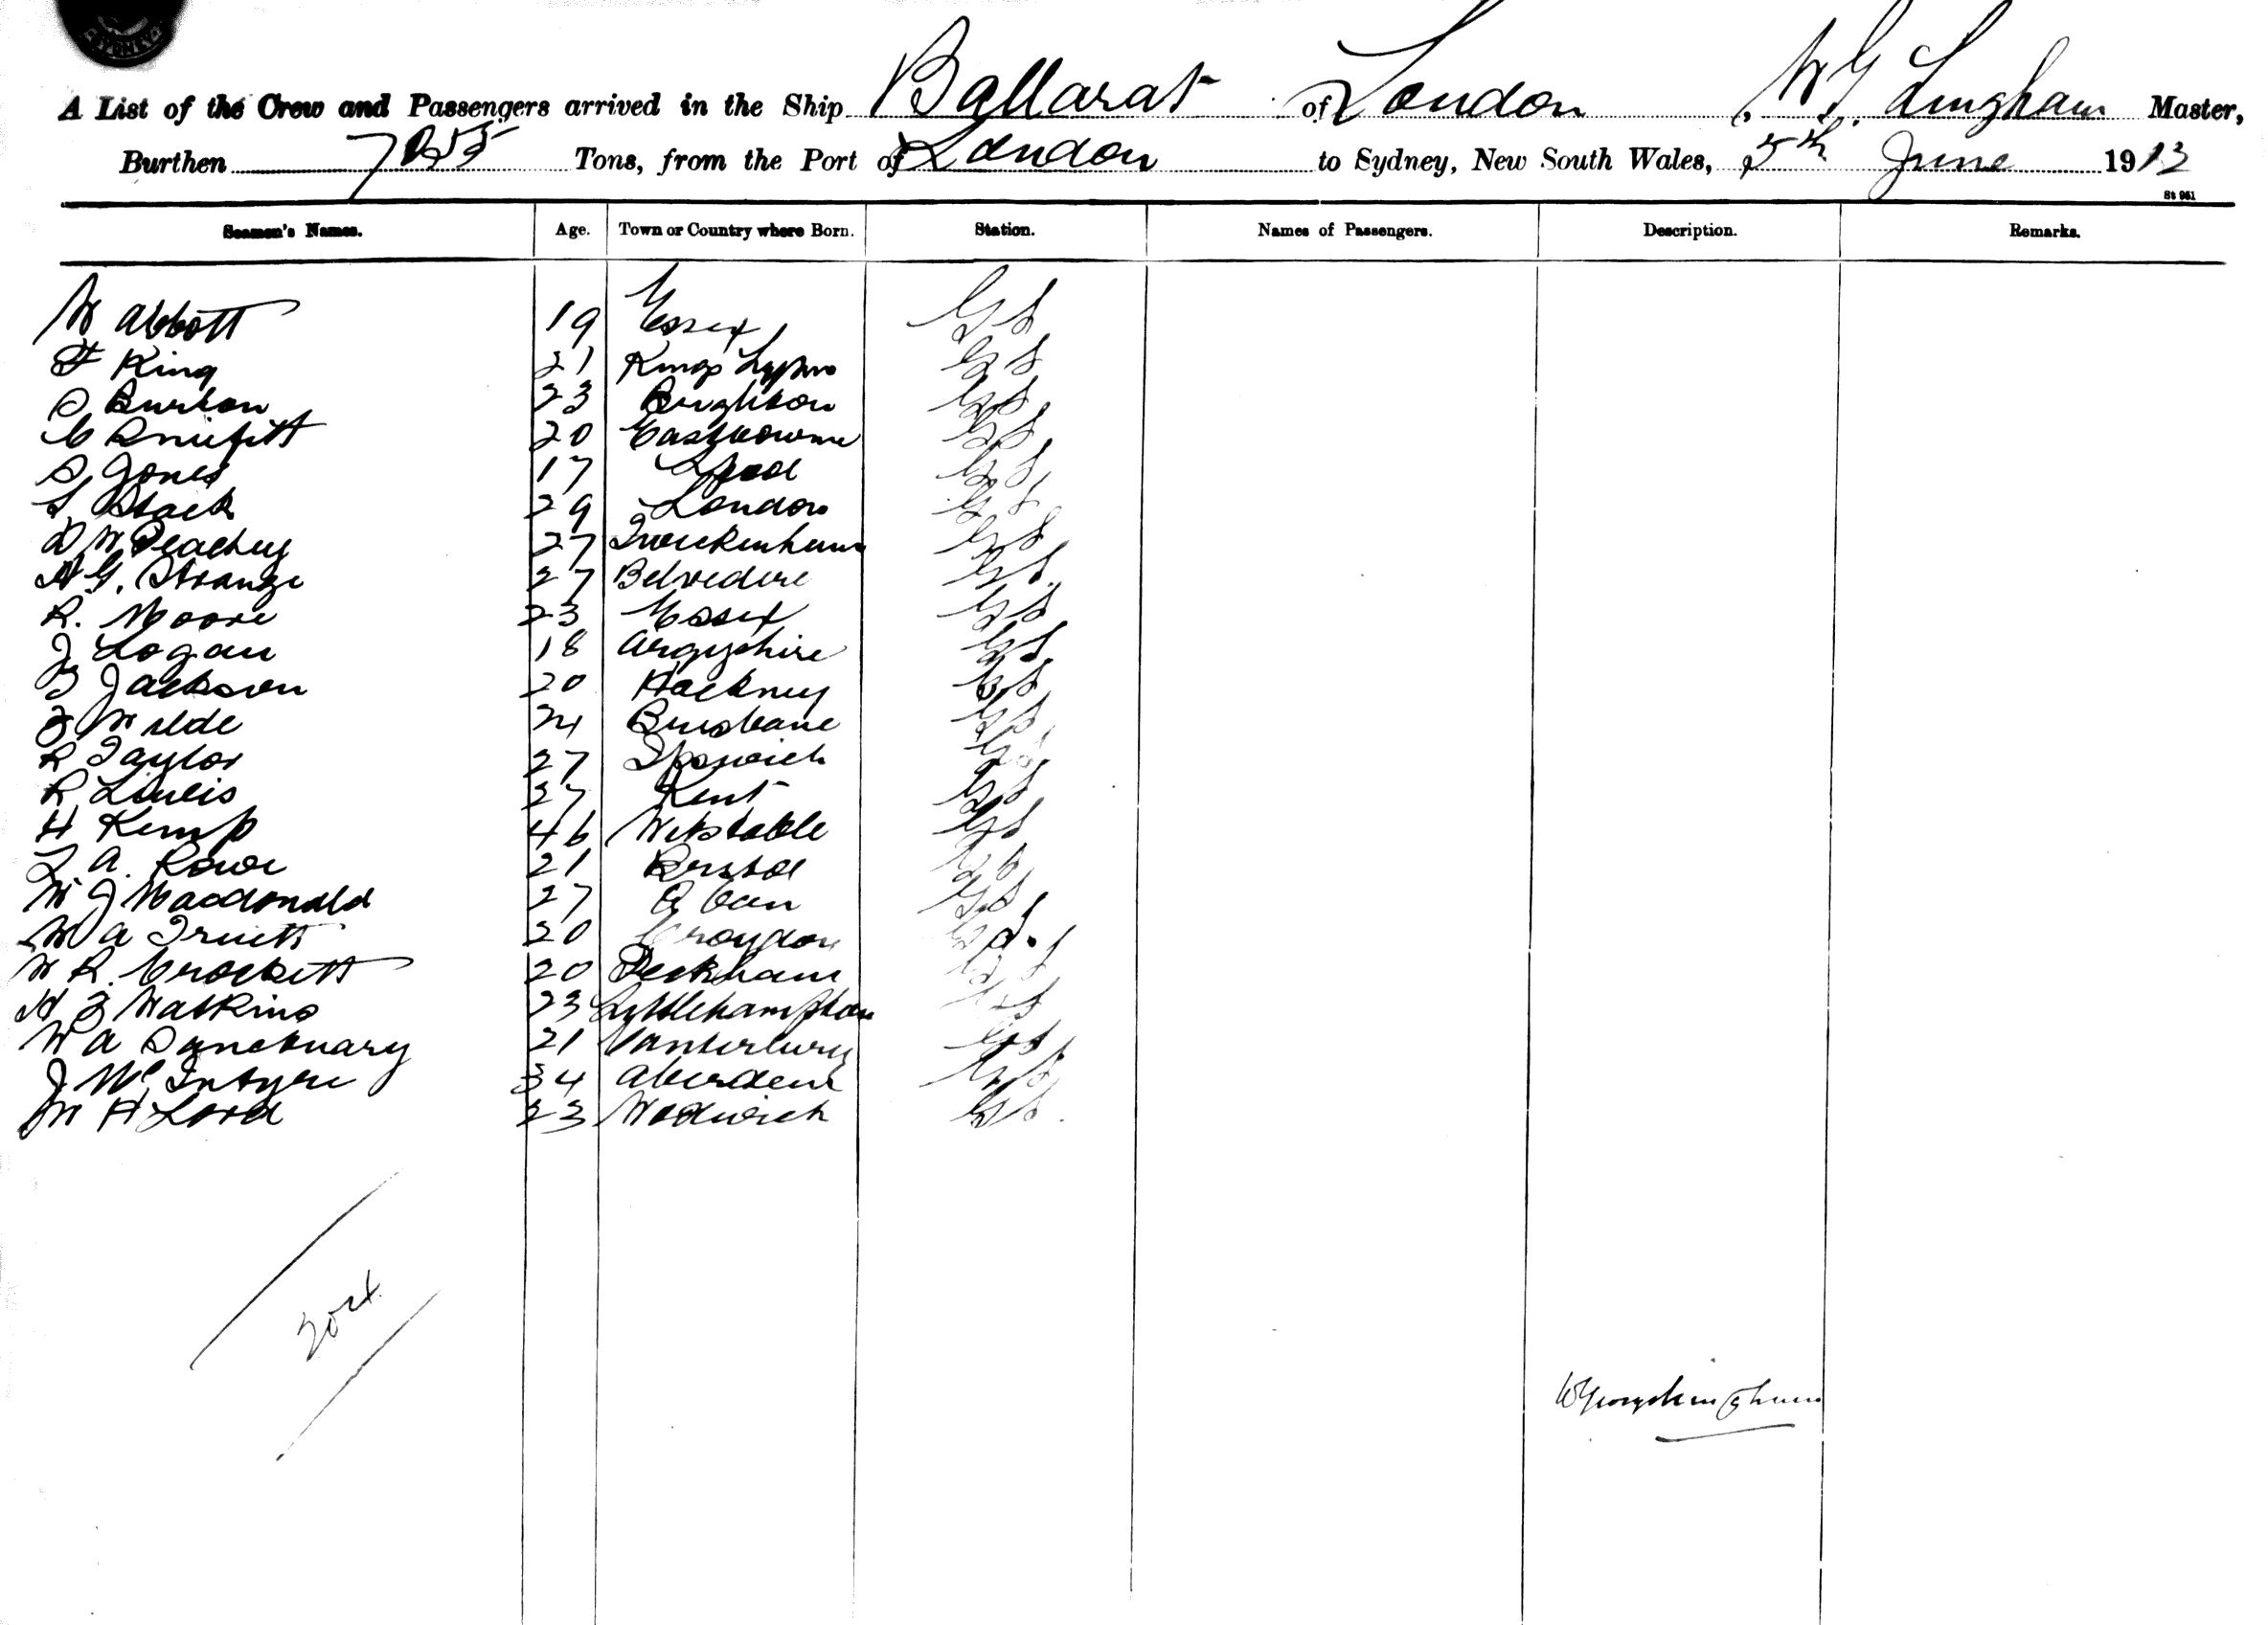 SYDNEY
A List of the Crew and Passengers arrived in the Ship Ballarat of London, W G Lingham Master,
Burthen 7055 Tons, from the Port of London to Sydney, New South Wales, 5th June 1913
St 951
Seamen's Names. Age. Town or Country where Born. Station. Names of Passengers. Description. Remarks.
W Abbott 19 Essex G S
F King 21 Kings Lynn G S
S Burton 23 Brighton G S
C 20 Eastbourne G S
S Jones 17 G S
S Stack 29 London G S
D W Peachey 27 Twickenham G S
H G. Strange 27 Belvedere G S.
R. Moore 23 Essex G S
J Logan 18 Argyshire G S.
B Jackson 20 Hackney G S
Wilde 21 Brisbane G S
R Taylor 27 Ipswich G S
R Lewis 27 Kent G S
H Kemp 46 Witstable G S
L A. Rowe 21 Bristol G S
W J Macdonald 27 Oban G S
W A Truett 20 Croydon G S.
W R. Crockett 20 Peckham G S
H J Watkins 23 Lyttlehampton G S
W A Sanctuary 21 Canterbury G S
J McIntyre 34 Aberdeen G S
W H Lord 23 Woolwich G S.
W George Lingham